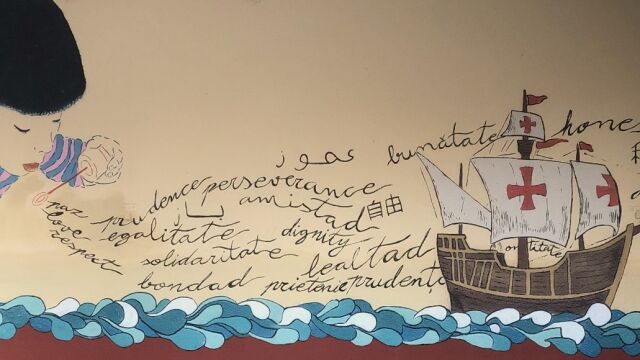 bunătate
hone
paz
prudence
perseverance
amistad
自由
love
egalitate
dignity
respect
solidaritate
lealtad
bondad
prietenie
prudenț